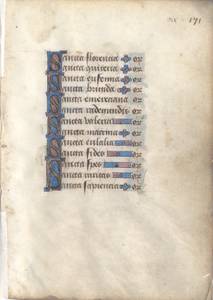 Sancta florencia or
Sancta quiteria or
Sancta eufemia or
Sancta or
Sancta emerenciana
Sancta radegundis or
Sancta valeria or
Sancta marina or
Sancta eulalia or
Sancta fides or
Sancta spes or
Sancta caritas or
Sancta sapiencia or